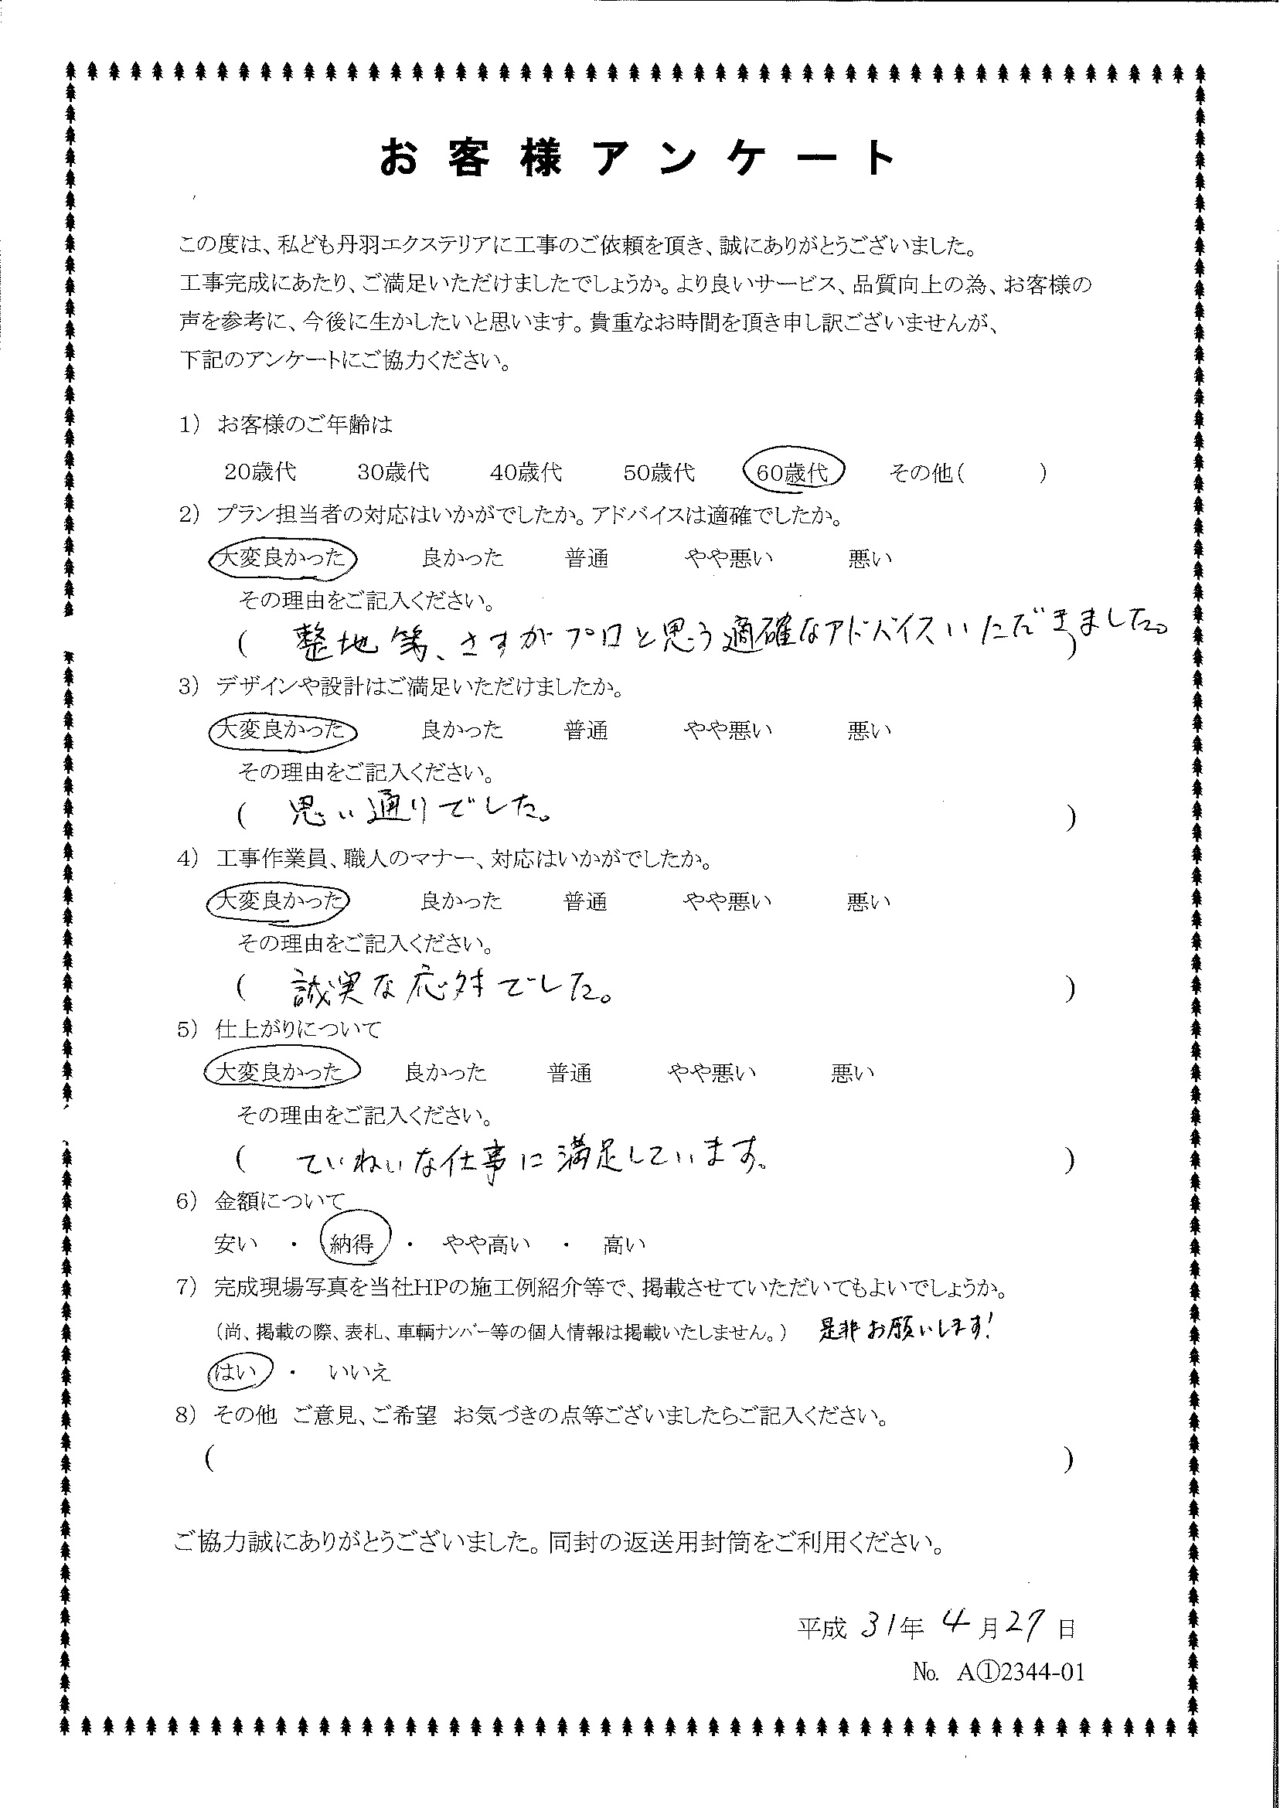 お客様アンケート
この度は、私ども丹羽エクステリアに工事のご依頼を頂き、誠にありがとうございました。
工事完成にあたり、ご満足いただけましたでしょうか。より良いサービス、品質向上の為、お客様の
声を参考に、今後に生かしたいと思います。貴重なお時間を頂き申し訳ございませんが、
下記のアンケートにご協力ください。
1) お客様のご年齢は
20歳代 30歳代 40歳代 50歳代 60歳代 その他( )
2) プラン担当者の対応はいかがでしたか。アドバイスは適確でしたか。
大変良かった 良かった 普通 やや悪い 悪い
その理由をご記入ください。
( 整地等、さすがプロと思う適確なアドバイスいただきました。 )
3) デザインや設計はご満足いただけましたか。
大変良かった 良かった 普通 やや悪い 悪い
その理由をご記入ください。
( 思い通りでした。 )
4) 工事作業員、職人のマナー、対応はいかがでしたか。
大変良かった 良かった 普通 やや悪い 悪い
その理由をご記入ください。
( 誠実な応対でした。 )
5) 仕上がりについて
大変良かった 良かった 普通 やや悪い 悪い
その理由をご記入ください。
( ていねいな仕事に満足しています。 )
6) 金額について
安い ・ 納得 ・ やや高い ・ 高い
7) 完成現場写真を当社HPの施工例紹介等で、掲載させていただいてもよいでしょうか。
(尚、掲載の際、表札、車輌ナンバー等の個人情報は掲載いたしません。) 是非お願いします!
はい ・ いいえ
8) その他 ご意見、ご希望 お気づきの点等ございましたらご記入ください。
( )
ご協力誠にありがとうございました。同封の返送用封筒をご利用ください。
平成 31年 4月27日
No. A①2344-01